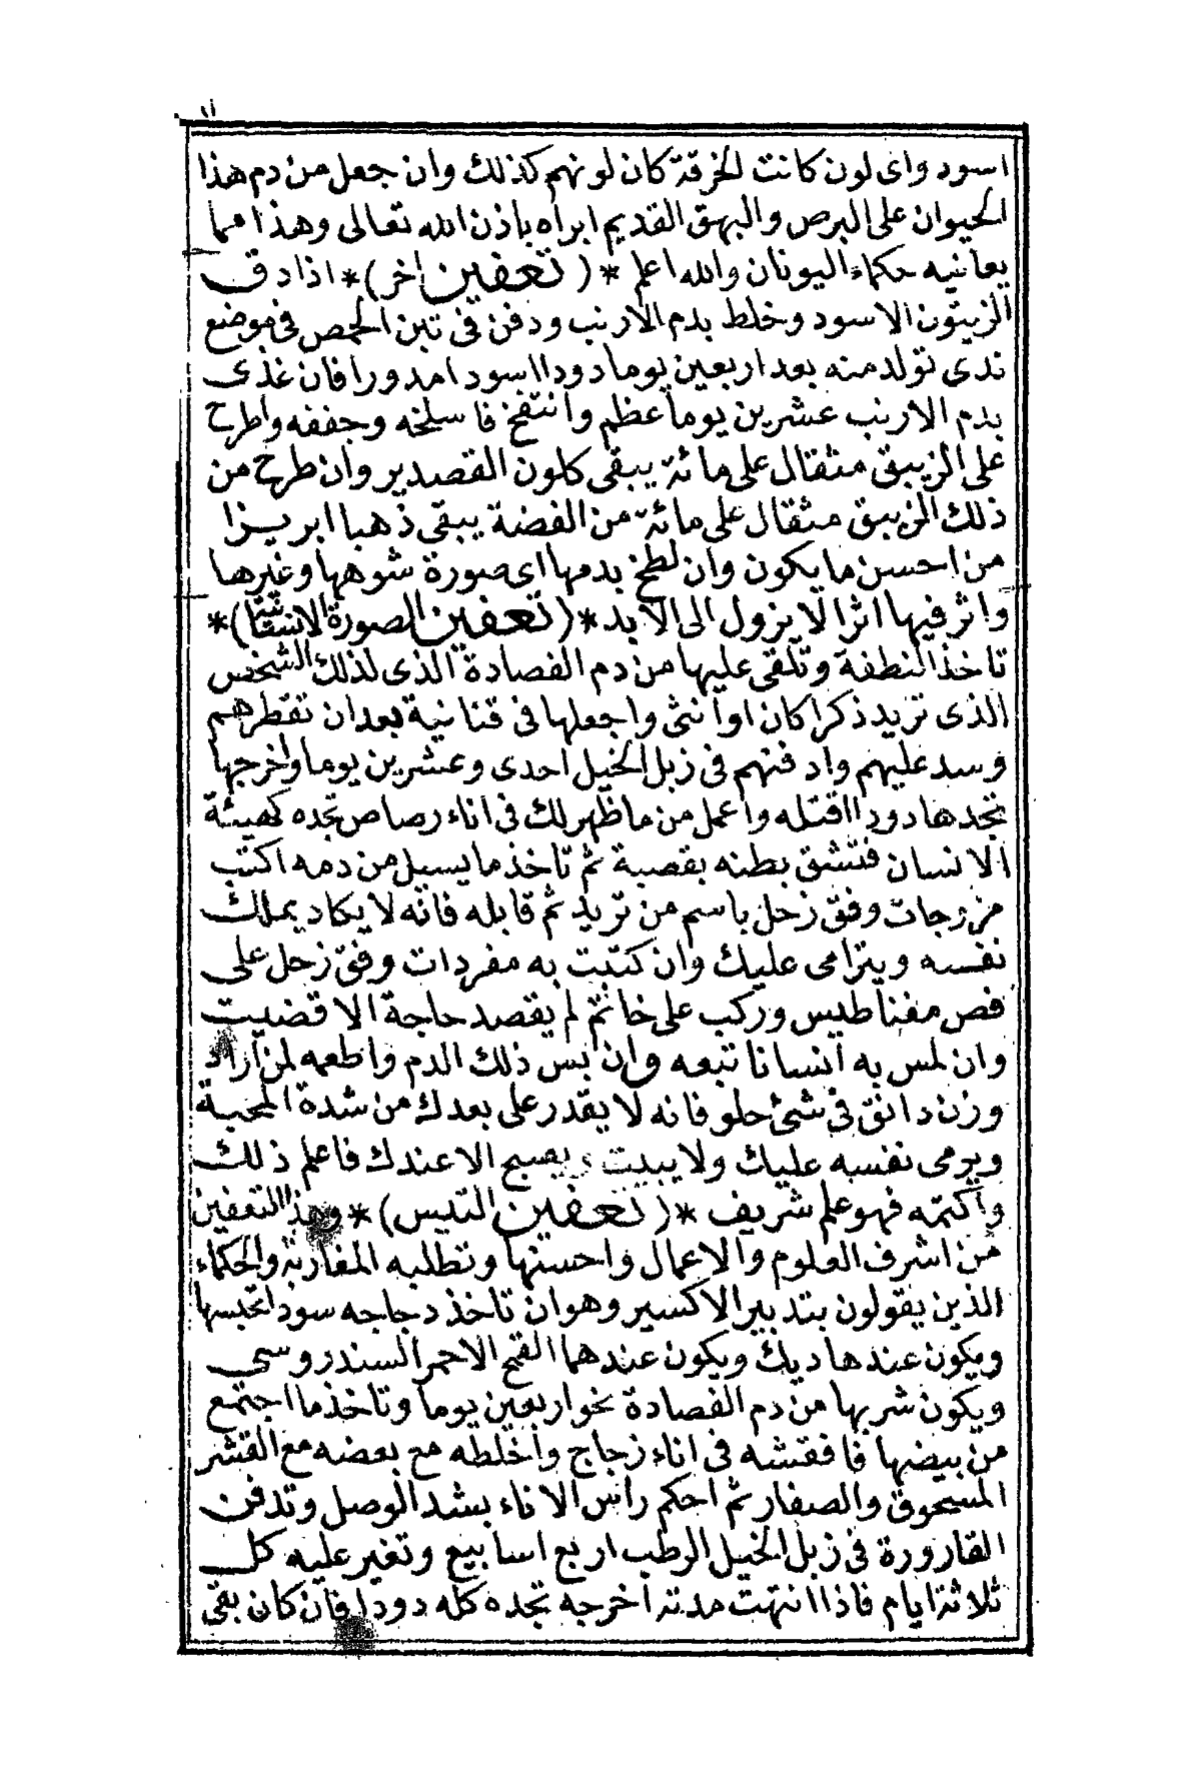 ١١
اسود واى لون كانت الخرقة كان لونهم كذلك وان جعل من دم هذا
الحيوان على البرص والبهق القديم ابراه باذن الله تعالى وهذا مما
يعانيه حكماء اليونان والله اعلم * (تعفين اخر) * اذا دق
الزيتون الاسود وخلط بدم الارنب ودفن فى تبن الحمص فى موضع
ندى تولد منه بعد اربعين يوما دودا اسود امدورا فان غذى
بدم الارنب عشرين يوما عظم وانتفخ فاسلخه وجففه واطرح
على الزيبق مثقال على مائة يبقى كلون القصدير وان طرح من
ذلك الزيبق مثقال على مائة من الفضة يبقى ذهبا ابريزا
من احسن ما يكون وان لطخ بدمها اى صورة شوهها وغيرها
واثر فيها اثرا لا يزول الى الابد * (تعفين الصورة الانسانية) *
تاخذ النطفة وتلقى عليها من دم الفصادة الذى لذلك الشخص
الذى تريد ذكرا كان او انثى واجعلها فى قنانية بعد ان تقطرهم
وسد عليهم وادفنهم فى زبل الخيل احدى وعشرين يوما واخرجها
تجدها دودا اقتله واعمل من ما ظهر لك فى اناء رصاص تجده كهيئة
الانسان فتشق بطنه بقصبة ثم تاخذ ما يسيل من دمه اكتب
مزرجات وفق زحل باسم من تريد ثم قابله فانه لا يكاد يملك
نفسه ويترامى عليك وان كتبت به مفردات وفق زحل على
فص مغناطيس وركب على خاتم لم يقصد حاجة الا قضيت
وان لمس به انسانا تبعه وان يبس ذلك الدم واطعمه لمن اراد
وزن دانق فى شئ حلو فانه لا يقدر على بعدك من شدة المحبة
ويرمى نفسه عليك ولا يبيت ويصبح الا عندك فاعلم ذلك
واكتمه فهو علم شريف * (تعفين التيس) * وهذا التعفين
من اشرف العلوم والاعمال واحسنها وتطلبه المغاربة والحكماء
الذين يقولون بتدبير الاكسير وهو ان تاخذ دجاجه سودا تحبسها
ويكون عندها ديك ويكون عندهما القمح الاحمر السندروسى
ويكون شربها من دم الفصادة نحو اربعين يوما وتاخذ ما اجتمع
من بيضها فافقشه فى اناء زجاج واخلطه مع بعضه مع القشر
المسحوق والصفار ثم احكم راس الاناء بشد الوصل وتدفن
القارورة فى زبل الخيل الرطب اربع اسابيع وتغير عليه كل
ثلاثة ايام فاذا انتهت مدته اخرجه تجده كله دودا فان كان بقى